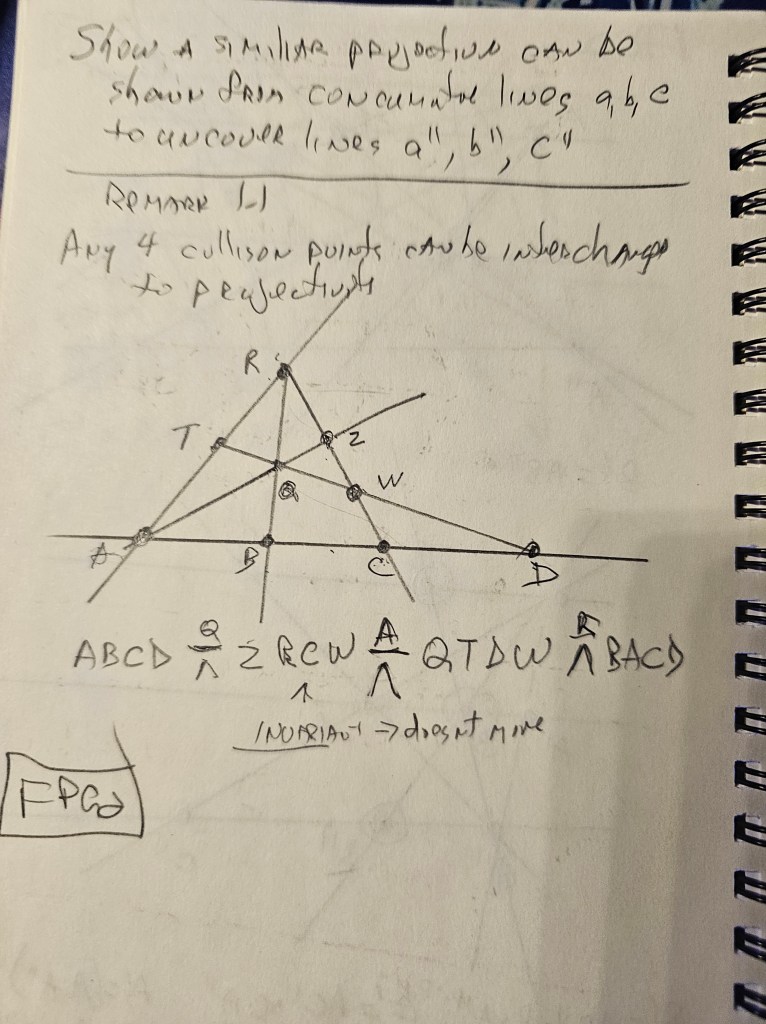 Show a similiar projection can be
shown from concurrent lines a, b, c
to uncover lines a", b", c"
Remark 1-1
Any 4 collison points can be interchange
to projectivity
R
T
Z
Q
W
A
B
C
D
ABCD Q/⊼ ZRCW A/⊼ QTDW R/⊼ BACD
^
invariant → doesnt move